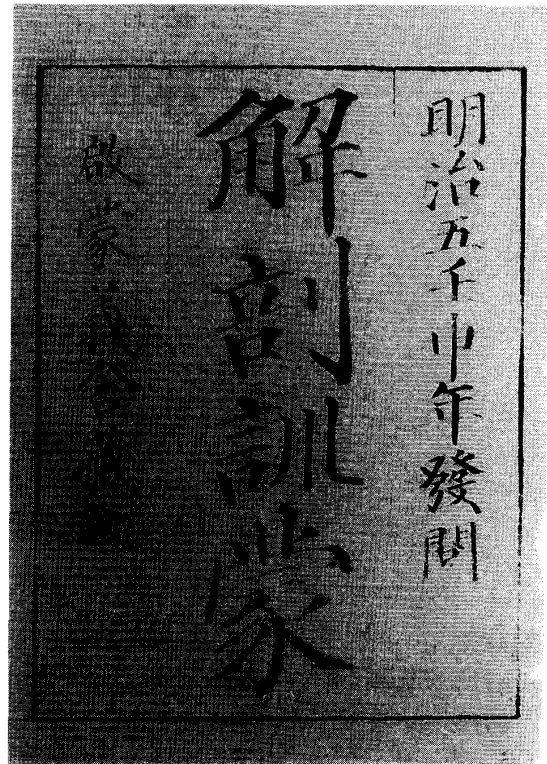 明治五壬申年發閲
解剖訓蒙
啟蒙義舍蔵